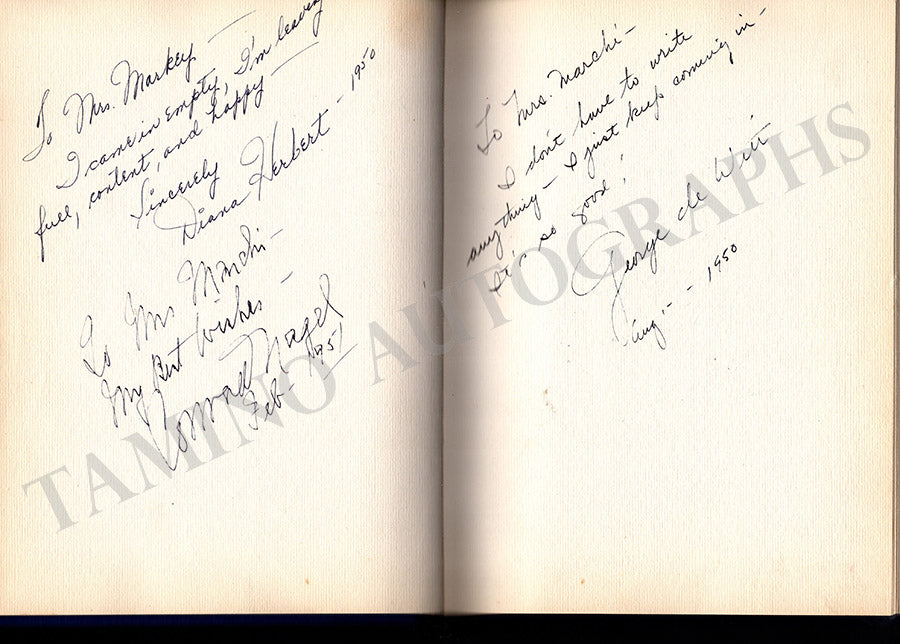 To Mrs. Markey —
I came in empty, I'm leaving
full, content, and happy —
Sincerely
Diana Herbert — 1950
To Mrs Marchi —
My Best Wishes —
Conrad Nagel
Feb - 1951
To Mrs. Marchi —
I don't have to write
anything — I just keep coming in —
it's so good!
George de Witt
Aug — 1950
TAMINO AUTOGRAPHS